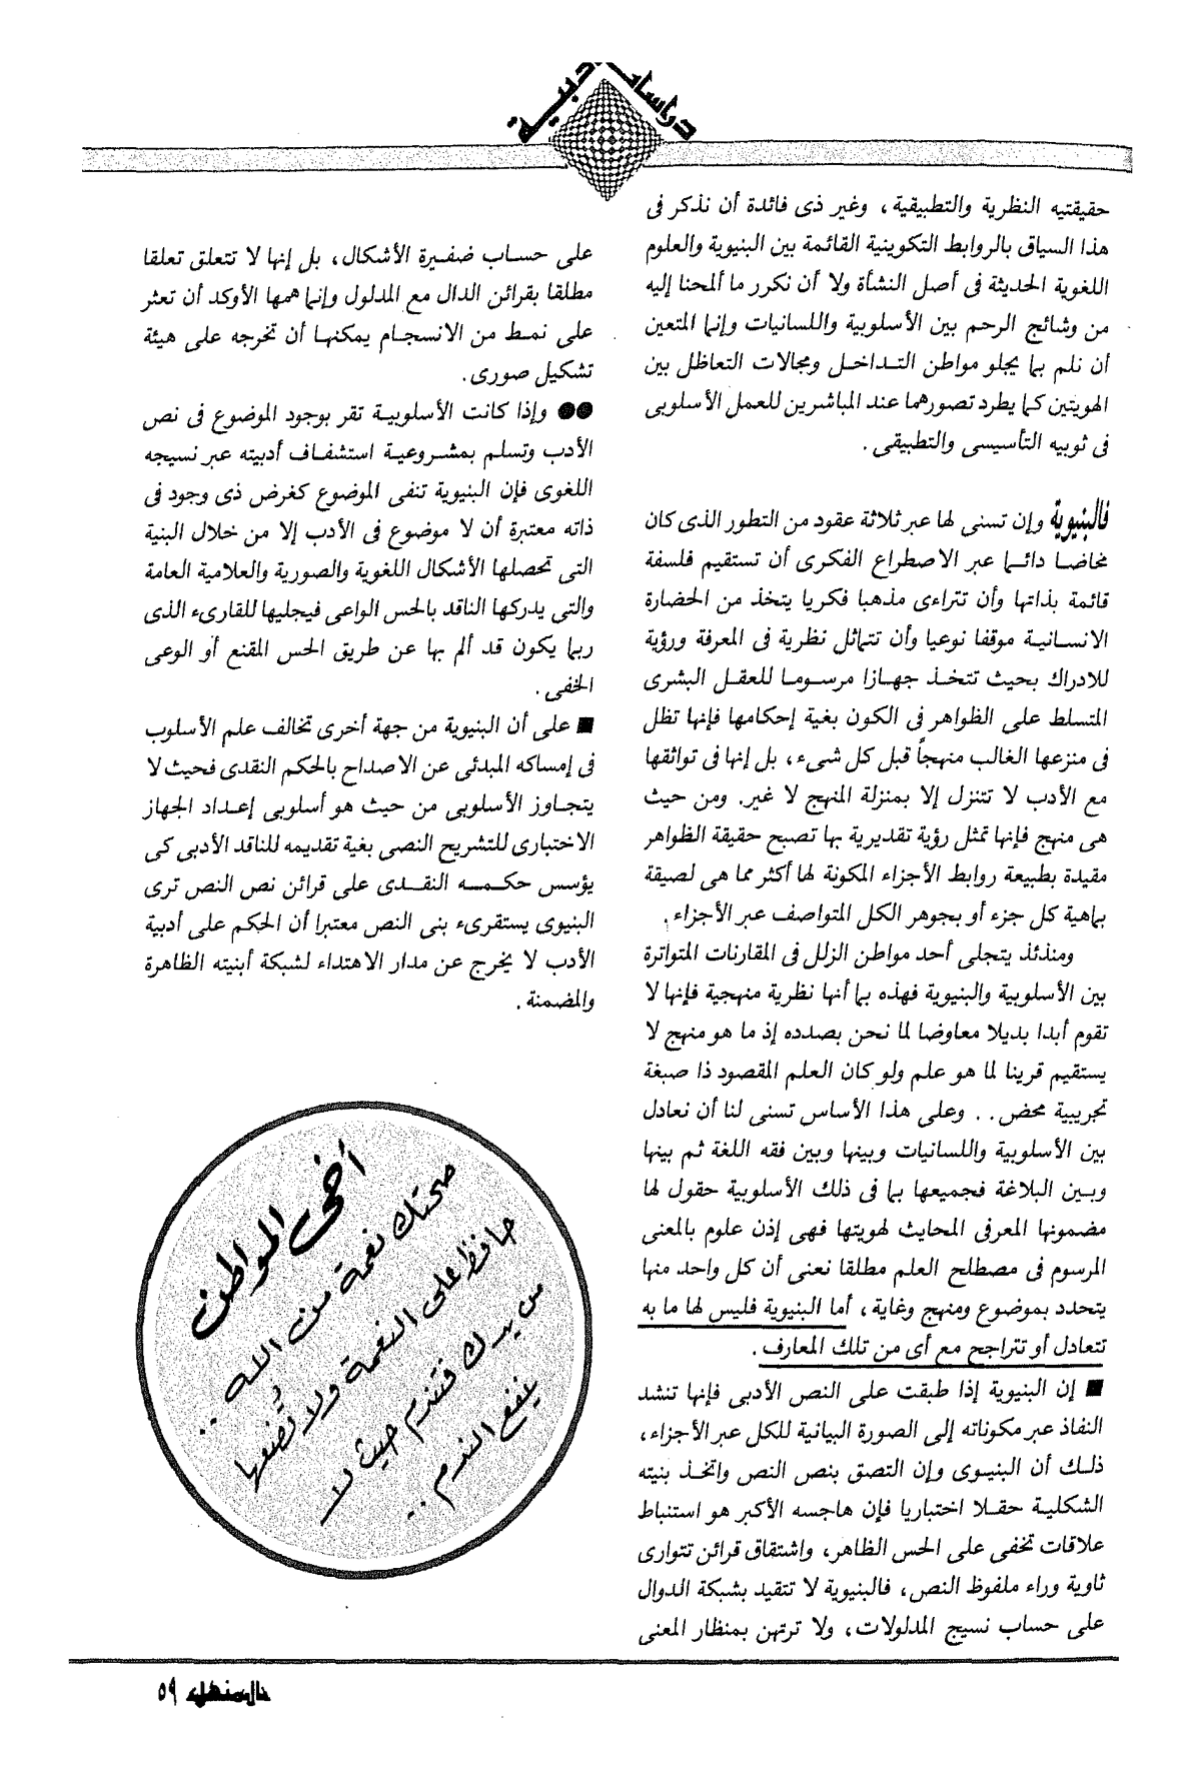 دراسات أدبية
حقيقتيه النظرية والتطبيقية، وغير ذى فائدة أن نذكر فى
هذا السياق بالروابط التكوينية القائمة بين البنيوية والعلوم
اللغوية الحديثة فى أصل النشأة ولا أن نكرر ما ألمحنا إليه
من وشائج الرحم بين الأسلوبية واللسانيات وإنما المتعين
أن نلم بما يجلو مواطن التداخل ومجالات التعاظل بين
الهويتين كما يطرد تصورهما عند المباشرين للعمل الأسلوبى
فى ثوبيه التأسيسى والتطبيقى.
فالبنيوية وإن تسنى لها عبر ثلاثة عقود من التطور الذى كان
مخاضا دائما عبر الاصطراع الفكرى أن تستقيم فلسفة
قائمة بذاتها وأن تتراءى مذهبا فكريا يتخذ من الحضارة
الانسانية موقفا نوعيا وأن تتماثل نظرية فى المعرفة ورؤية
للادراك بحيث تتخذ جهازا مرسوما للعقل البشرى
المتسلط على الظواهر فى الكون بغية إحكامها فإنها تظل
فى منزعها الغالب منهجاً قبل كل شىء، بل إنها فى تواثقها
مع الأدب لا تتنزل إلا بمنزلة المنهج لا غير. ومن حيث
هى منهج فإنها تمثل رؤية تقديرية بها تصبح حقيقة الظواهر
مقيدة بطبيعة روابط الأجزاء المكونة لها أكثر مما هى لصيقة
بماهية كل جزء أو بجوهر الكل المتواصف عبر الأجزاء.
ومنذئذ يتجلى أحد مواطن الزلل فى المقارنات المتواترة
بين الأسلوبية والبنيوية فهذه بما أنها نظرية منهجية فإنها لا
تقوم أبدا بديلا معاوضا لما نحن بصدده إذ ما هو منهج لا
يستقيم قرينا لما هو علم ولو كان العلم المقصود ذا صبغة
تجريبية محض.. وعلى هذا الأساس تسنى لنا أن نعادل
بين الأسلوبية واللسانيات وبينها وبين فقه اللغة ثم بينها
وبين البلاغة فجميعها بما فى ذلك الأسلوبية حقول لها
مضمونها المعرفى المحايث لهويتها فهى إذن علوم بالمعنى
المرسوم فى مصطلح العلم مطلقا نعنى أن كل واحد منها
يتحدد بموضوع ومنهج وغاية، أما البنيوية فليس لها ما به
تتعادل أو تتراجح مع أى من تلك المعارف.
■ إن البنيوية إذا طبقت على النص الأدبى فإنها تنشد
النفاذ عبر مكوناته إلى الصورة البيانية للكل عبر الأجزاء،
ذلك أن البنيوى وإن التصق بنص النص واتخذ بنيته
الشكلية حقلا اختباريا فإن هاجسه الأكبر هو استنباط
علاقات تخفى على الحس الظاهر، واشتقاق قرائن تتوارى
ثاوية وراء ملفوظ النص، فالبنيوية لا تتقيد بشبكة الدوال
على حساب نسيج المدلولات، ولا ترتهن بمنظار المعنى
على حساب ضفيرة الأشكال، بل إنها لا تتعلق تعلقا
مطلقا بقرائن الدال مع المدلول وإنما همها الأوكد أن تعثر
على نمط من الانسجام يمكنها أن تخرجه على هيئة
تشكيل صورى.
●● وإذا كانت الأسلوبية تقر بوجود الموضوع فى نص
الأدب وتسلم بمشروعية استشفاف أدبيته عبر نسيجه
اللغوى فإن البنيوية تنفى الموضوع كغرض ذى وجود فى
ذاته معتبرة أن لا موضوع فى الأدب إلا من خلال البنية
التى تحصلها الأشكال اللغوية والصورية والعلامية العامة
والتى يدركها الناقد بالحس الواعى فيجليها للقارىء الذى
ربما يكون قد ألم بها عن طريق الحس المقنع أو الوعى
الخفى.
■ على أن البنيوية من جهة أخرى تخالف علم الأسلوب
فى إمساكه المبدئى عن الاصداح بالحكم النقدى فحيث لا
يتجاوز الأسلوبى من حيث هو أسلوبى إعداد الجهاز
الاختبارى للتشريح النصى بغية تقديمه للناقد الأدبى كى
يؤسس حكمه النقدى على قرائن نص النص ترى
البنيوى يستقرىء بنى النص معتبرا أن الحكم على أدبية
الأدب لا يخرج عن مدار الاهتداء لشبكة أبنيته الظاهرة
والمضمنة.
أخى المواطن
صحتك نعمة من الله ..
حافظ على النعمة ولا تُضعها
من يدك فتندم حيث لا
ينفع الندم ..
المنهل ٥٩